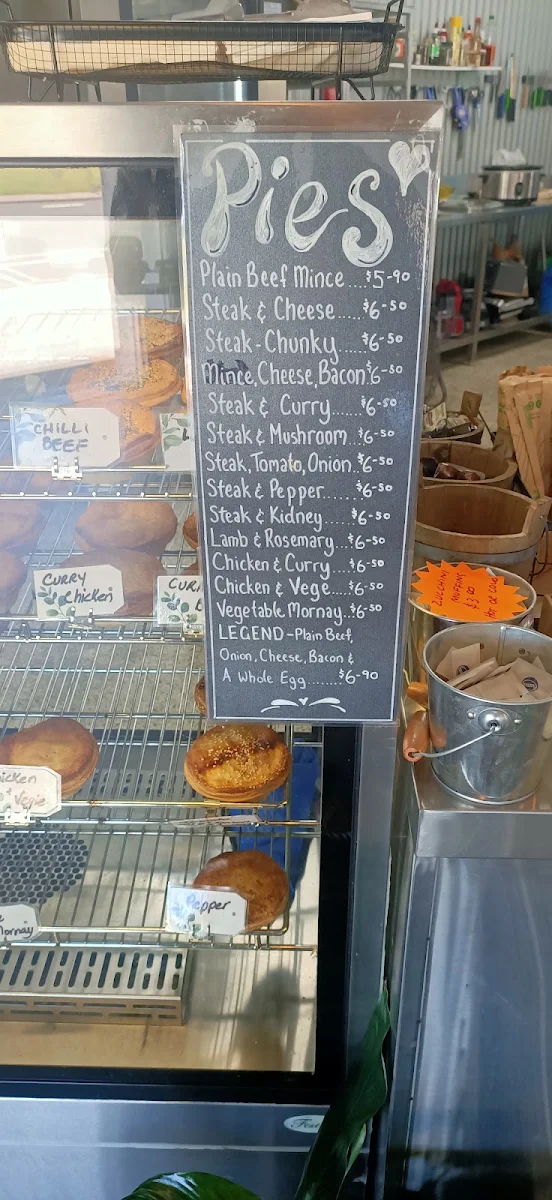 Pies
Plain Beef Mince....$5-90
Steak & Cheese.....$6-50
Steak-Chunky....$6-50
Mince,Cheese,Bacon $6-50
Steak & Curry......$6-50
Steak & Mushroom..$6-50
Steak,Tomato,Onion.$6-50
Steak & Pepper......$6-50
Steak & Kidney.....$6-50
Lamb & Rosemary...$6-50
Chicken & Curry...$6-50
Chicken & Vege....$6-50
Vegetable Mornay..$6-50
LEGEND-Plain Beef,
Onion, Cheese, Bacon &
A Whole Egg.......$6-90
CHILLI
BEEF
CURRY
Chicken
ZUCCHINI
MUFFINS
Pepper
Mornay